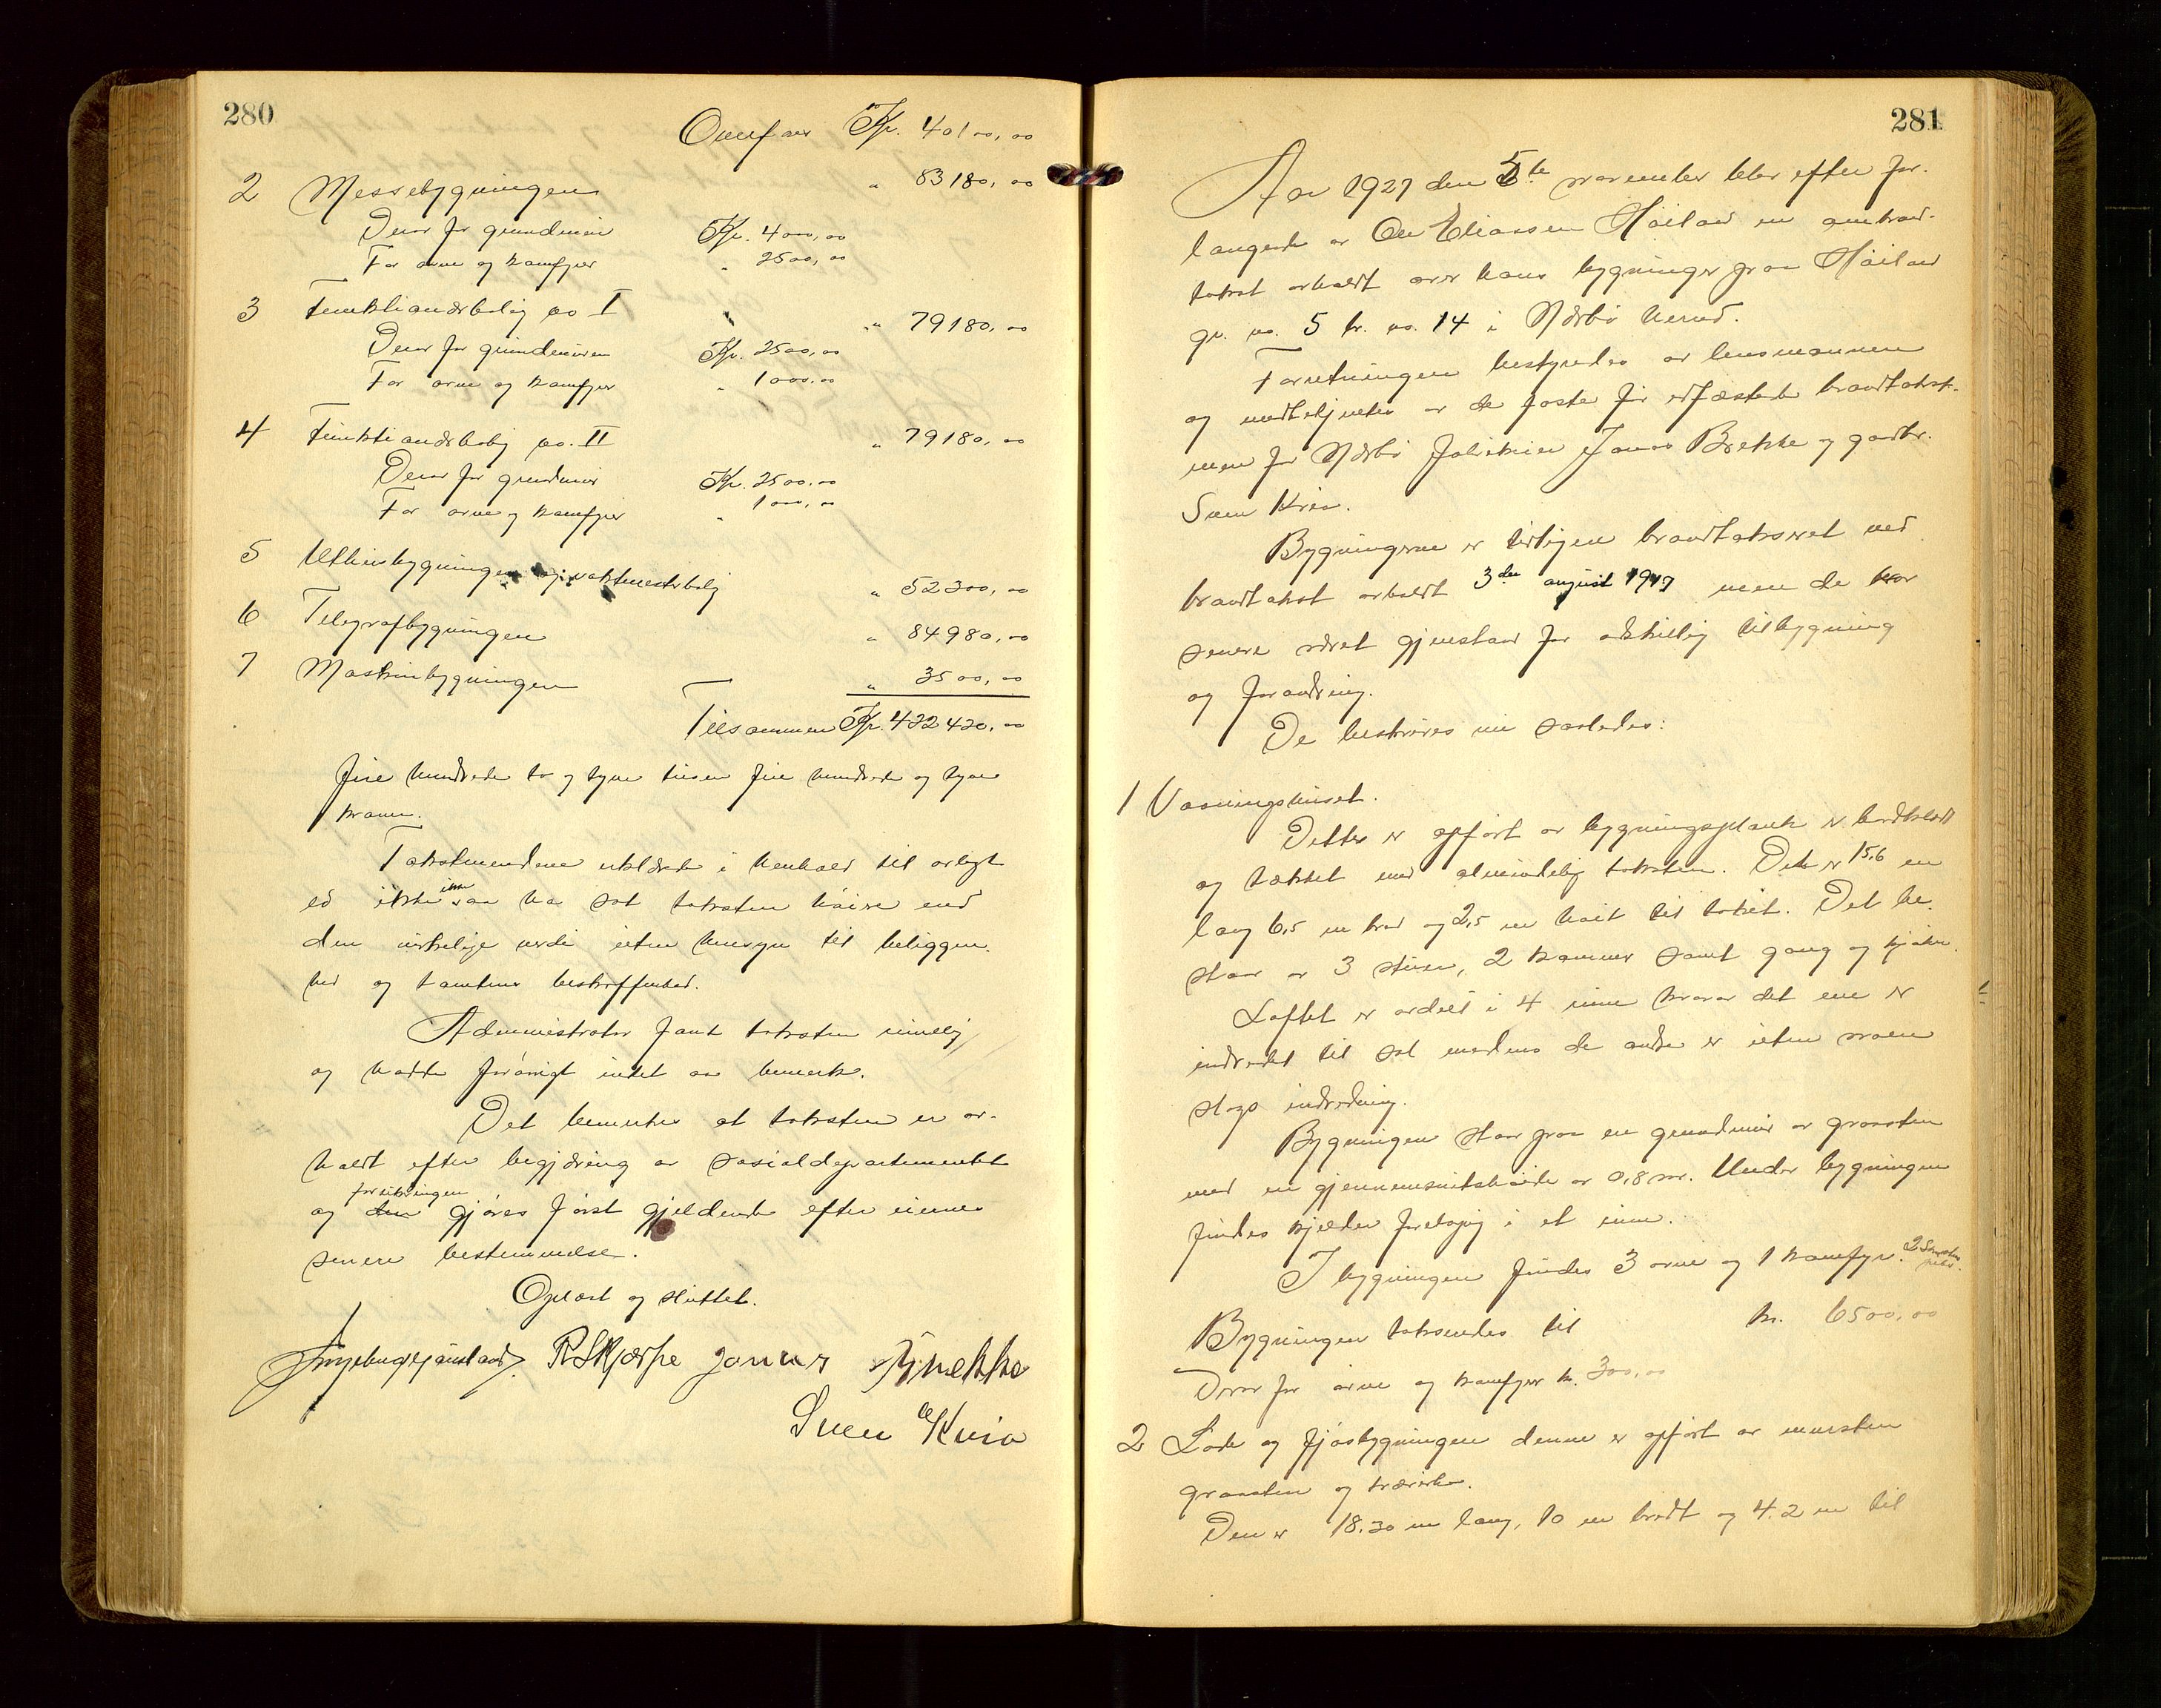 280
Overført Kr. 40100,00
2 Messebygningen " 83180,00
Derav for grundmur Kr. 4000,00
For ovne og komfyrer " 2500,00
3 Funktionærbolig no I " 79180,00
Derav for grundmuren Kr. 2500,00
For ovne og komfyrer " 1000,00
4 Funktionærbolig no. II " 79180,00
Derav for grundmur Kr. 2500,00
For ovne og komfyrer " 1000,00
5 Uthusbygningen og vaktmesterbolig " 52300,00
6 Telegrafbygningen " 84980,00
7 Maskinbygningen " 3500,00
Tilsammen Kr. 422420,00
fire hundrede to og tyve tusen fire hundrede og tyve
kroner.
Takstmændene erklærte i henhold til avlagt
ed ikke at ha sat taksten høiere end
den virkelige verdi uten hensyn til beliggen-
het og tomtens beskaffenhet.
Administrator fant taksten rimelig
og hadde forøvrigt intet at bemerke.
Det bemerkes at taksten er av-
holdt efter begjæring av Sosialdepartementet
forsikringen
og den gjøres først gjeldende efter
senere bestemmelse.
Oplæst og sluttet.
R Skjærpe Jonas Brekke
Sven Kvia
281
Aar 1927 den 5te november blev efter for-
langende av Ole Eliassen Høiland en ombrand-
takst avholdt over hans bygninger paa Høiland
gr. no. 5 br. no. 14 i Nærbø herred.
Forretningen bestyredes av lensmannen
og medbetjentes av de faste før edfæstede brandtakst-
men for Nærbø Jonas Brekke og gardbr.
Sven Kvia.
Bygningerne er tidligere brandtaksert ved
brandtakst avholdt 3die august 1917 men de har
senere været gjenstand for adskillig tilbygning
og forandring.
De beskrives nu saaledes:
1 Vaaningshuset.
Dette er opført av bygningsplank er bordklædt
og tækket med almindelig taksten. Det er 15,6 m
lang 6,5 m bred og 2,5 m høit til taket. Det be-
staar av 3 stuer, 2 kammer samt gang og kjøken.
Loftet er avdelt i 4 rum hvorav det ene er
indredet til sal medens de andre er uten noen
slags indredning.
Bygningen staar paa en grundmur av graasten
med en gjennemsnitshøide av 0,8 m. Under bygningen
findes kjelder forøvrig i et rum.
I bygningen findes 3 ovne og 1 komfyr. 2
Bygningen taksendes til kr. 6500,00
Derav for ovne og komfyrer kr. 300,00
2 Lade og fjøsbygningen denne er opført av mursten
graasten og træverk.
Den er 18,30 m lang, 10 m bredt og 4.2 m til